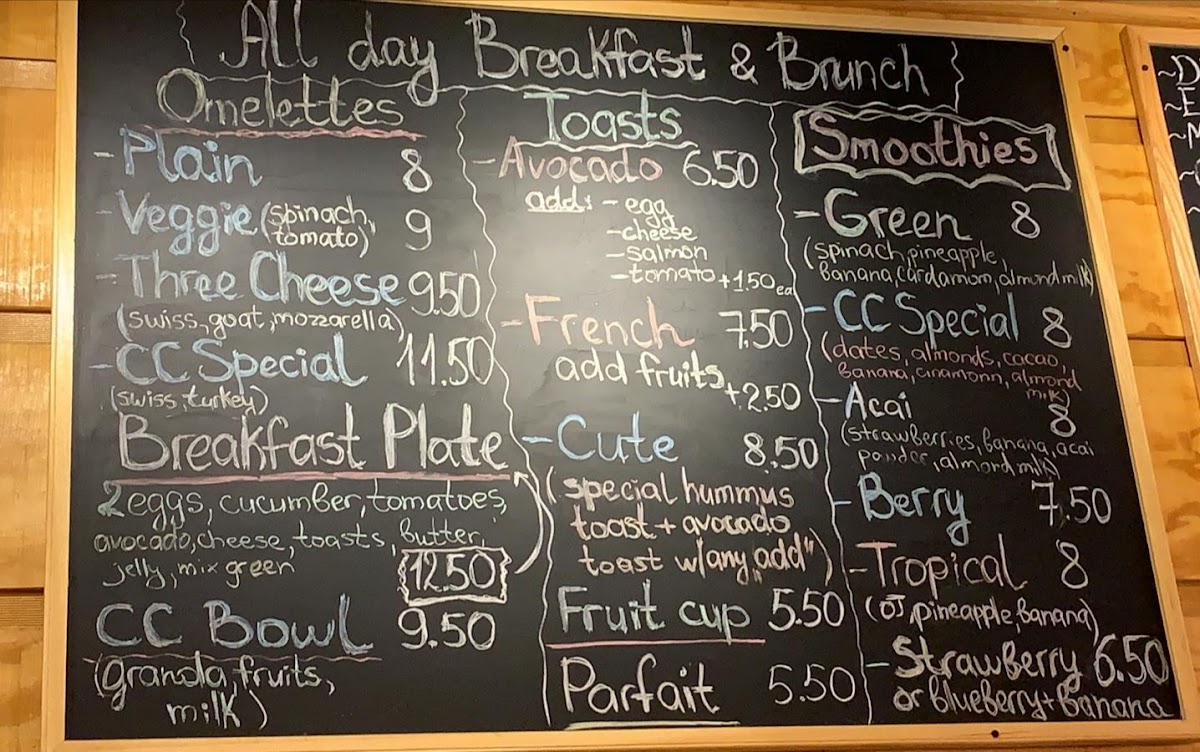 All day Breakfast & Brunch
Omelettes
- Plain 8
- Veggie (spinach, 9
tomato)
- Three Cheese 9.50
(swiss, goat, mozzarella)
- CC Special 11.50
(swiss, turkey)
Breakfast Plate
2 eggs, cucumber, tomatoes,
avocado, cheese, toasts, butter,
jelly, mix green
12.50
CC Bowl 9.50
(granola, fruits,
milk)
Toasts
- Avocado 6.50
add: - egg
- cheese
- salmon
- tomato +1.50 ea
- French 7.50
add fruits +2.50
- Cute 8.50
(special hummus
toast + avocado
toast w/any „add")
Fruit cup 5.50
Parfait 5.50
Smoothies
- Green 8
(spinach, pineapple,
banana, cardamom, almond milk)
- CC Special 8
(dates, almonds, cacao,
banana, cinamonn, almond
milk)
- Acai 8
(strawberries, banana, acai
powder, almond milk)
- Berry 7.50
- Tropical 8
(OJ, pineapple, banana)
- Strawberry 6.50
or blueberry + banana